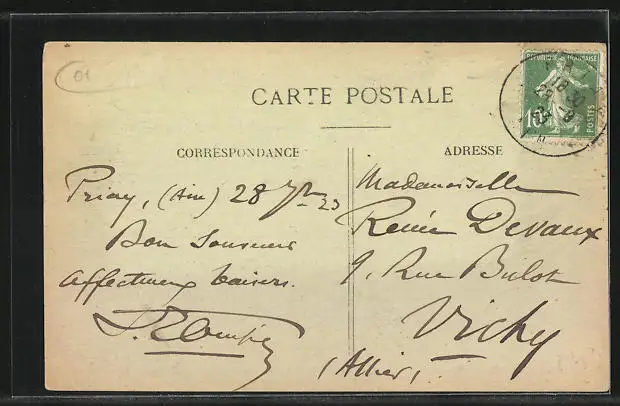 01
CARTE POSTALE
CORRESPONDANCE
Priay, (Ain) 28 7bre 23
Bon Souvenir
Affectueux baisers.
ADRESSE
Mademoiselle
Renée Devaux
9, Rue Bulot
Vichy
(Allier)
REPUBLIQUE FRANÇAISE
10
POSTES